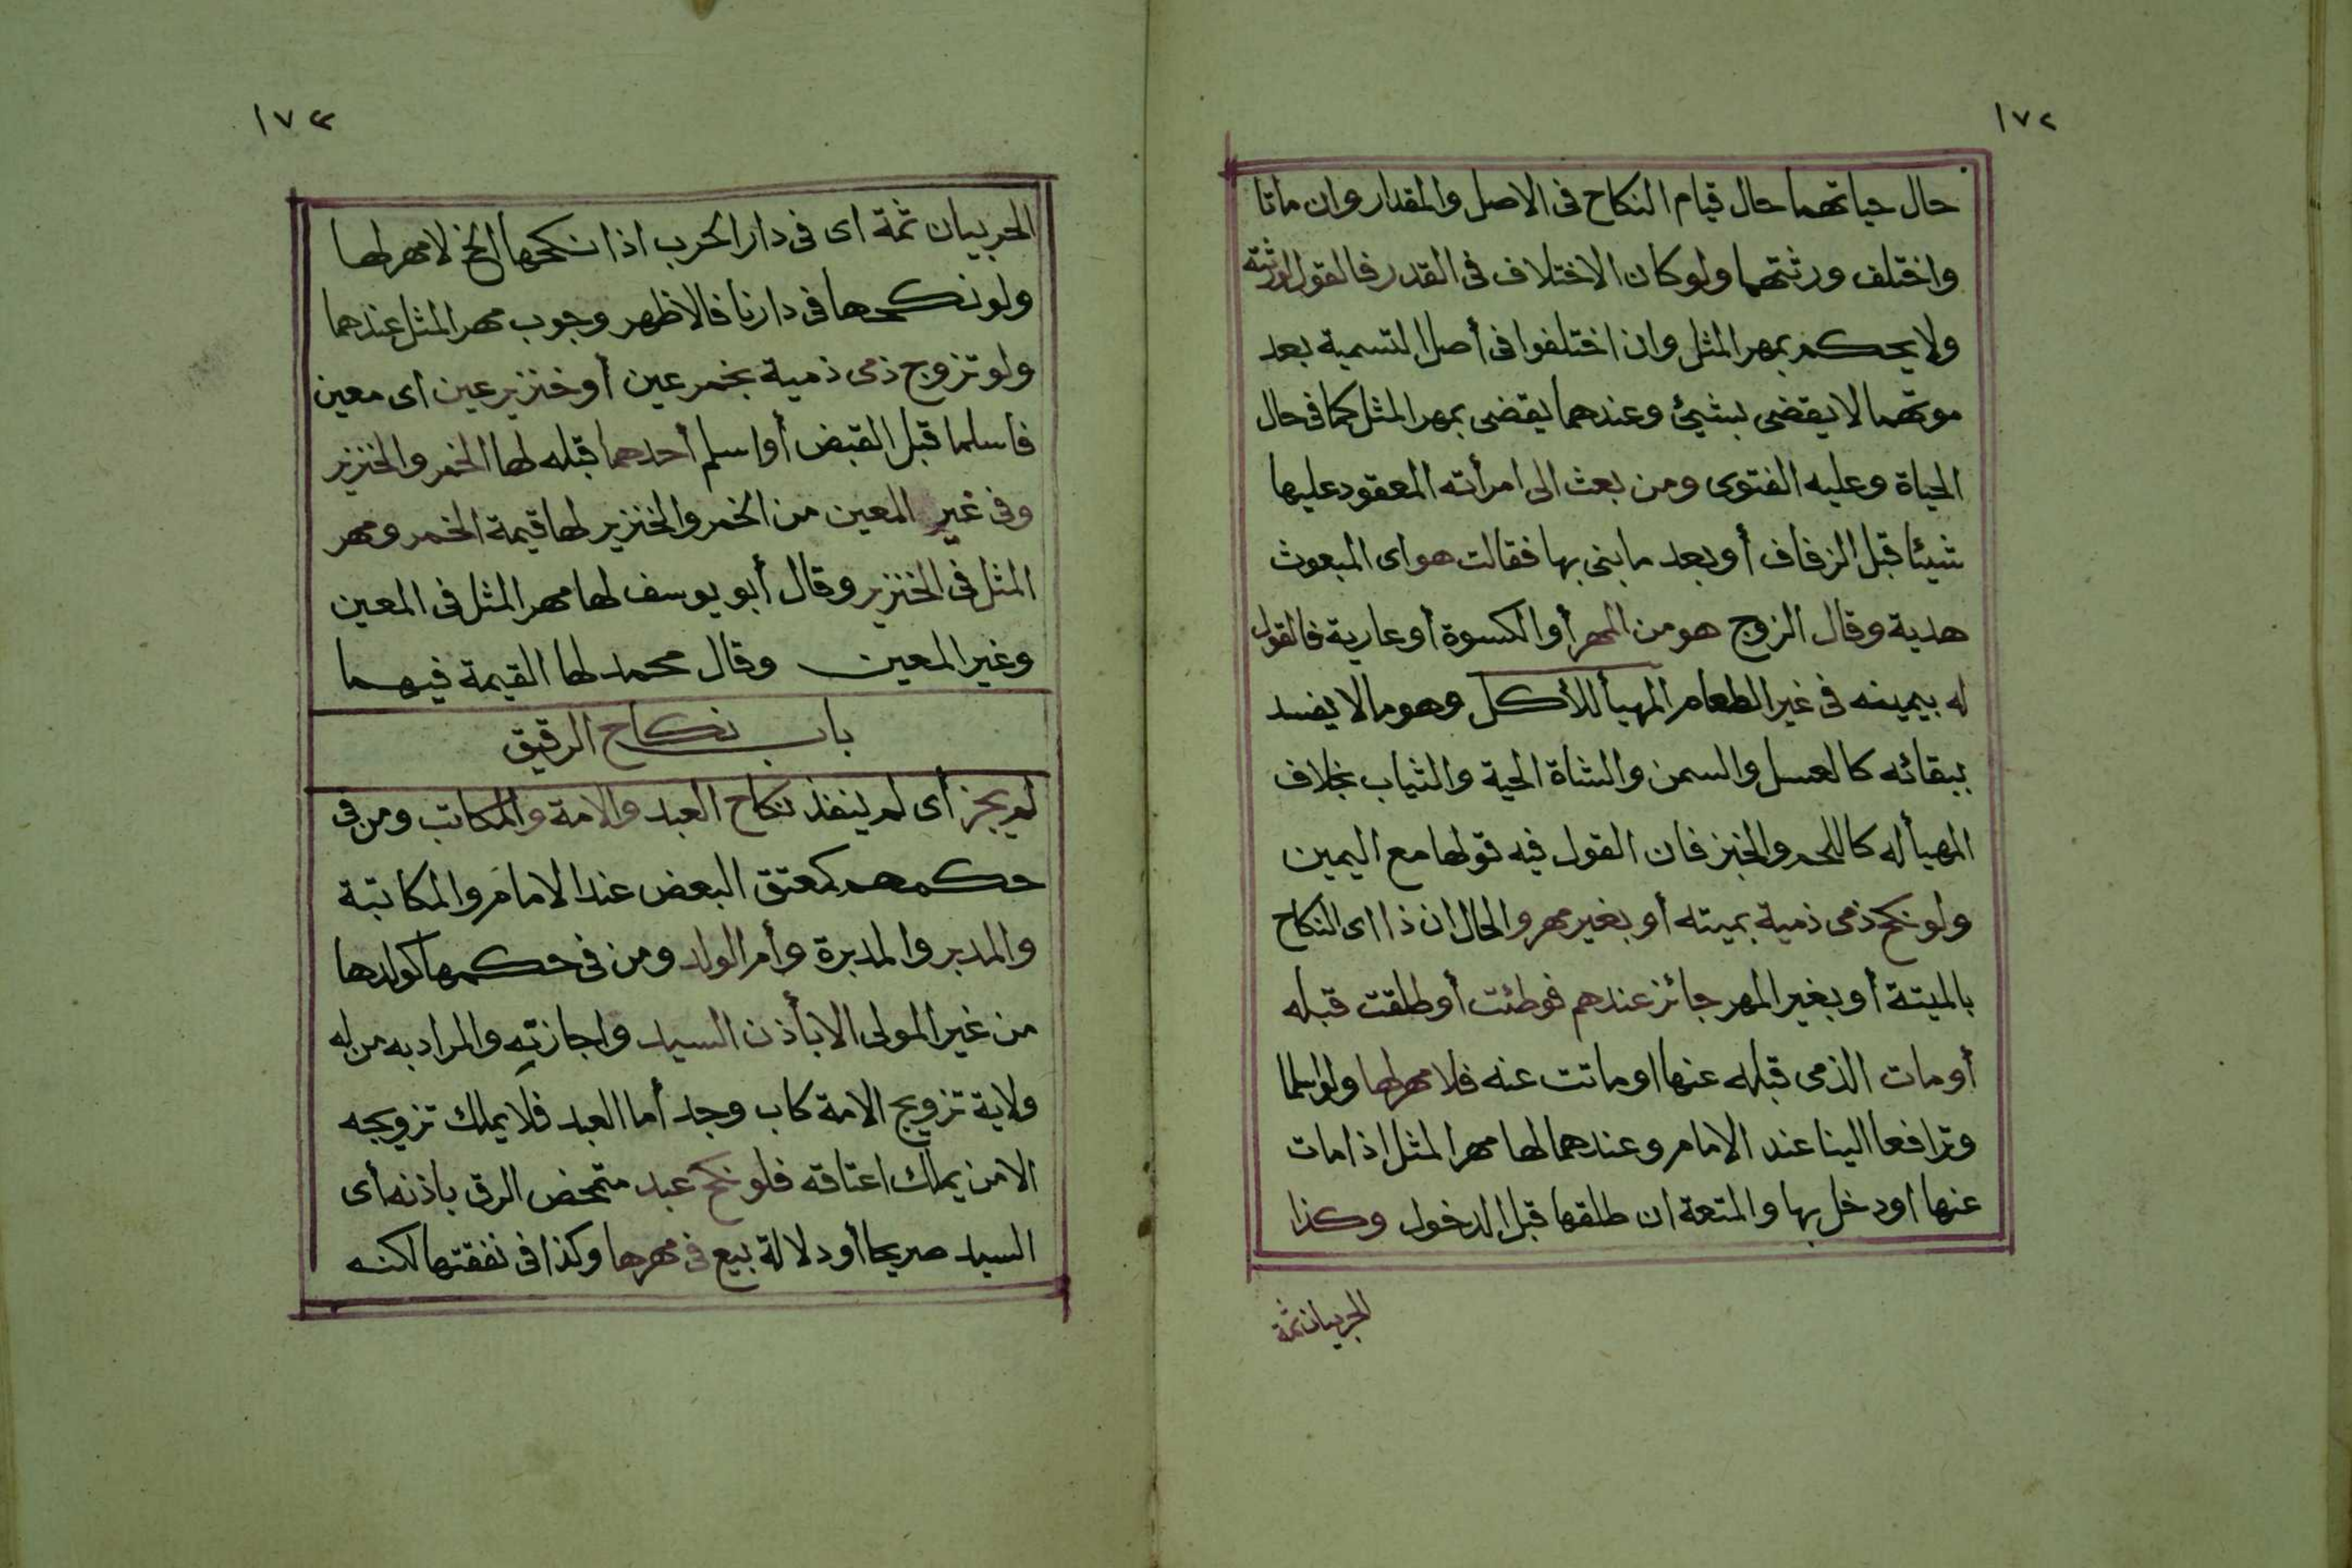 ١٧٢
حال حياتهما حال قيام النكاح فى الاصل والمقدار وان ماتا
واختلف ورثتهما ولو كان الاختلاف فى القدر فالقول لورثته
ولا يحكم بمهر المثل وان اختلفوا فى أصل التسمية بعد
موتهما لا يقضى بشيئ وعندهما يقضى بمهر المثل كما فى حال
الحياة وعليه الفتوى ومن بعث الى امرأته المعقود عليها
شيئا قبل الزفاف أو بعد ما بنى بها فقالت هو اى المبعوث
هدية وقال الزوج هو من المهر أو الكسوة أو عارية فالقول
له بيمينه فى غير الطعام المهيأ للأكل وهو مالا يفسد
ببقائه كالعسل والسمن والشاة الحية والثياب بخلاف
المهيأ له كاللحم والخبز فان القول فيه قولها مع اليمين
ولو نكح ذمى ذمية بميتة أو بغير مهر والحال ان ذا اى النكاح
بالميتة أو بغير المهر جائز عندهم فوطئت أو طلقت قبله
أو مات الذمى قبله عنها او ماتت عنه فلا مهر لها ولو اسلما
وترافعا الينا عند الامام وعندهما لها مهر المثل اذا مات
عنها او دخل بها والمتعة ان طلقها قبل الدخول وكذا
الحربيان ثمة
١٧٣
الحربيان ثمة اى فى دار الحرب اذا نكحها الخ لا مهر لها
ولو نكحها فى دارنا فالاظهر وجوب مهر المثل عندهما
ولو تزوج ذمى ذمية بخمر عين أو خنزير عين اى معين
فاسلما قبل القبض أو اسلم أحدهما قبله لها الخمر والخنزير
وفى غير المعين من الخمر والخنزير لها قيمة الخمر ومهر
المثل فى الخنزير وقال أبو يوسف لها مهر المثل فى المعين
وغير المعين وقال محمد لها القيمة فيهما
باب نكاح الرقيق
لم يجز أى لم ينفذ نكاح العبد والامة والمكاتب ومن فى
حكمهم كمعتق البعض عند الامام والمكاتبة
والمدبر والمدبرة وأم الولد ومن فى حكمها كولدها
من غير المولى الا بأذن السيد واجازته والمراد به من له
ولاية تزويج الامة كاب وجد أما العبد فلا يملك تزويجه
الا من يملك اعتاقه فلو نكح عبد متمحض الرق باذنه أى
السيد صريحا أو دلالة بيع فى مهرها وكذا فى نفقتها لكنه